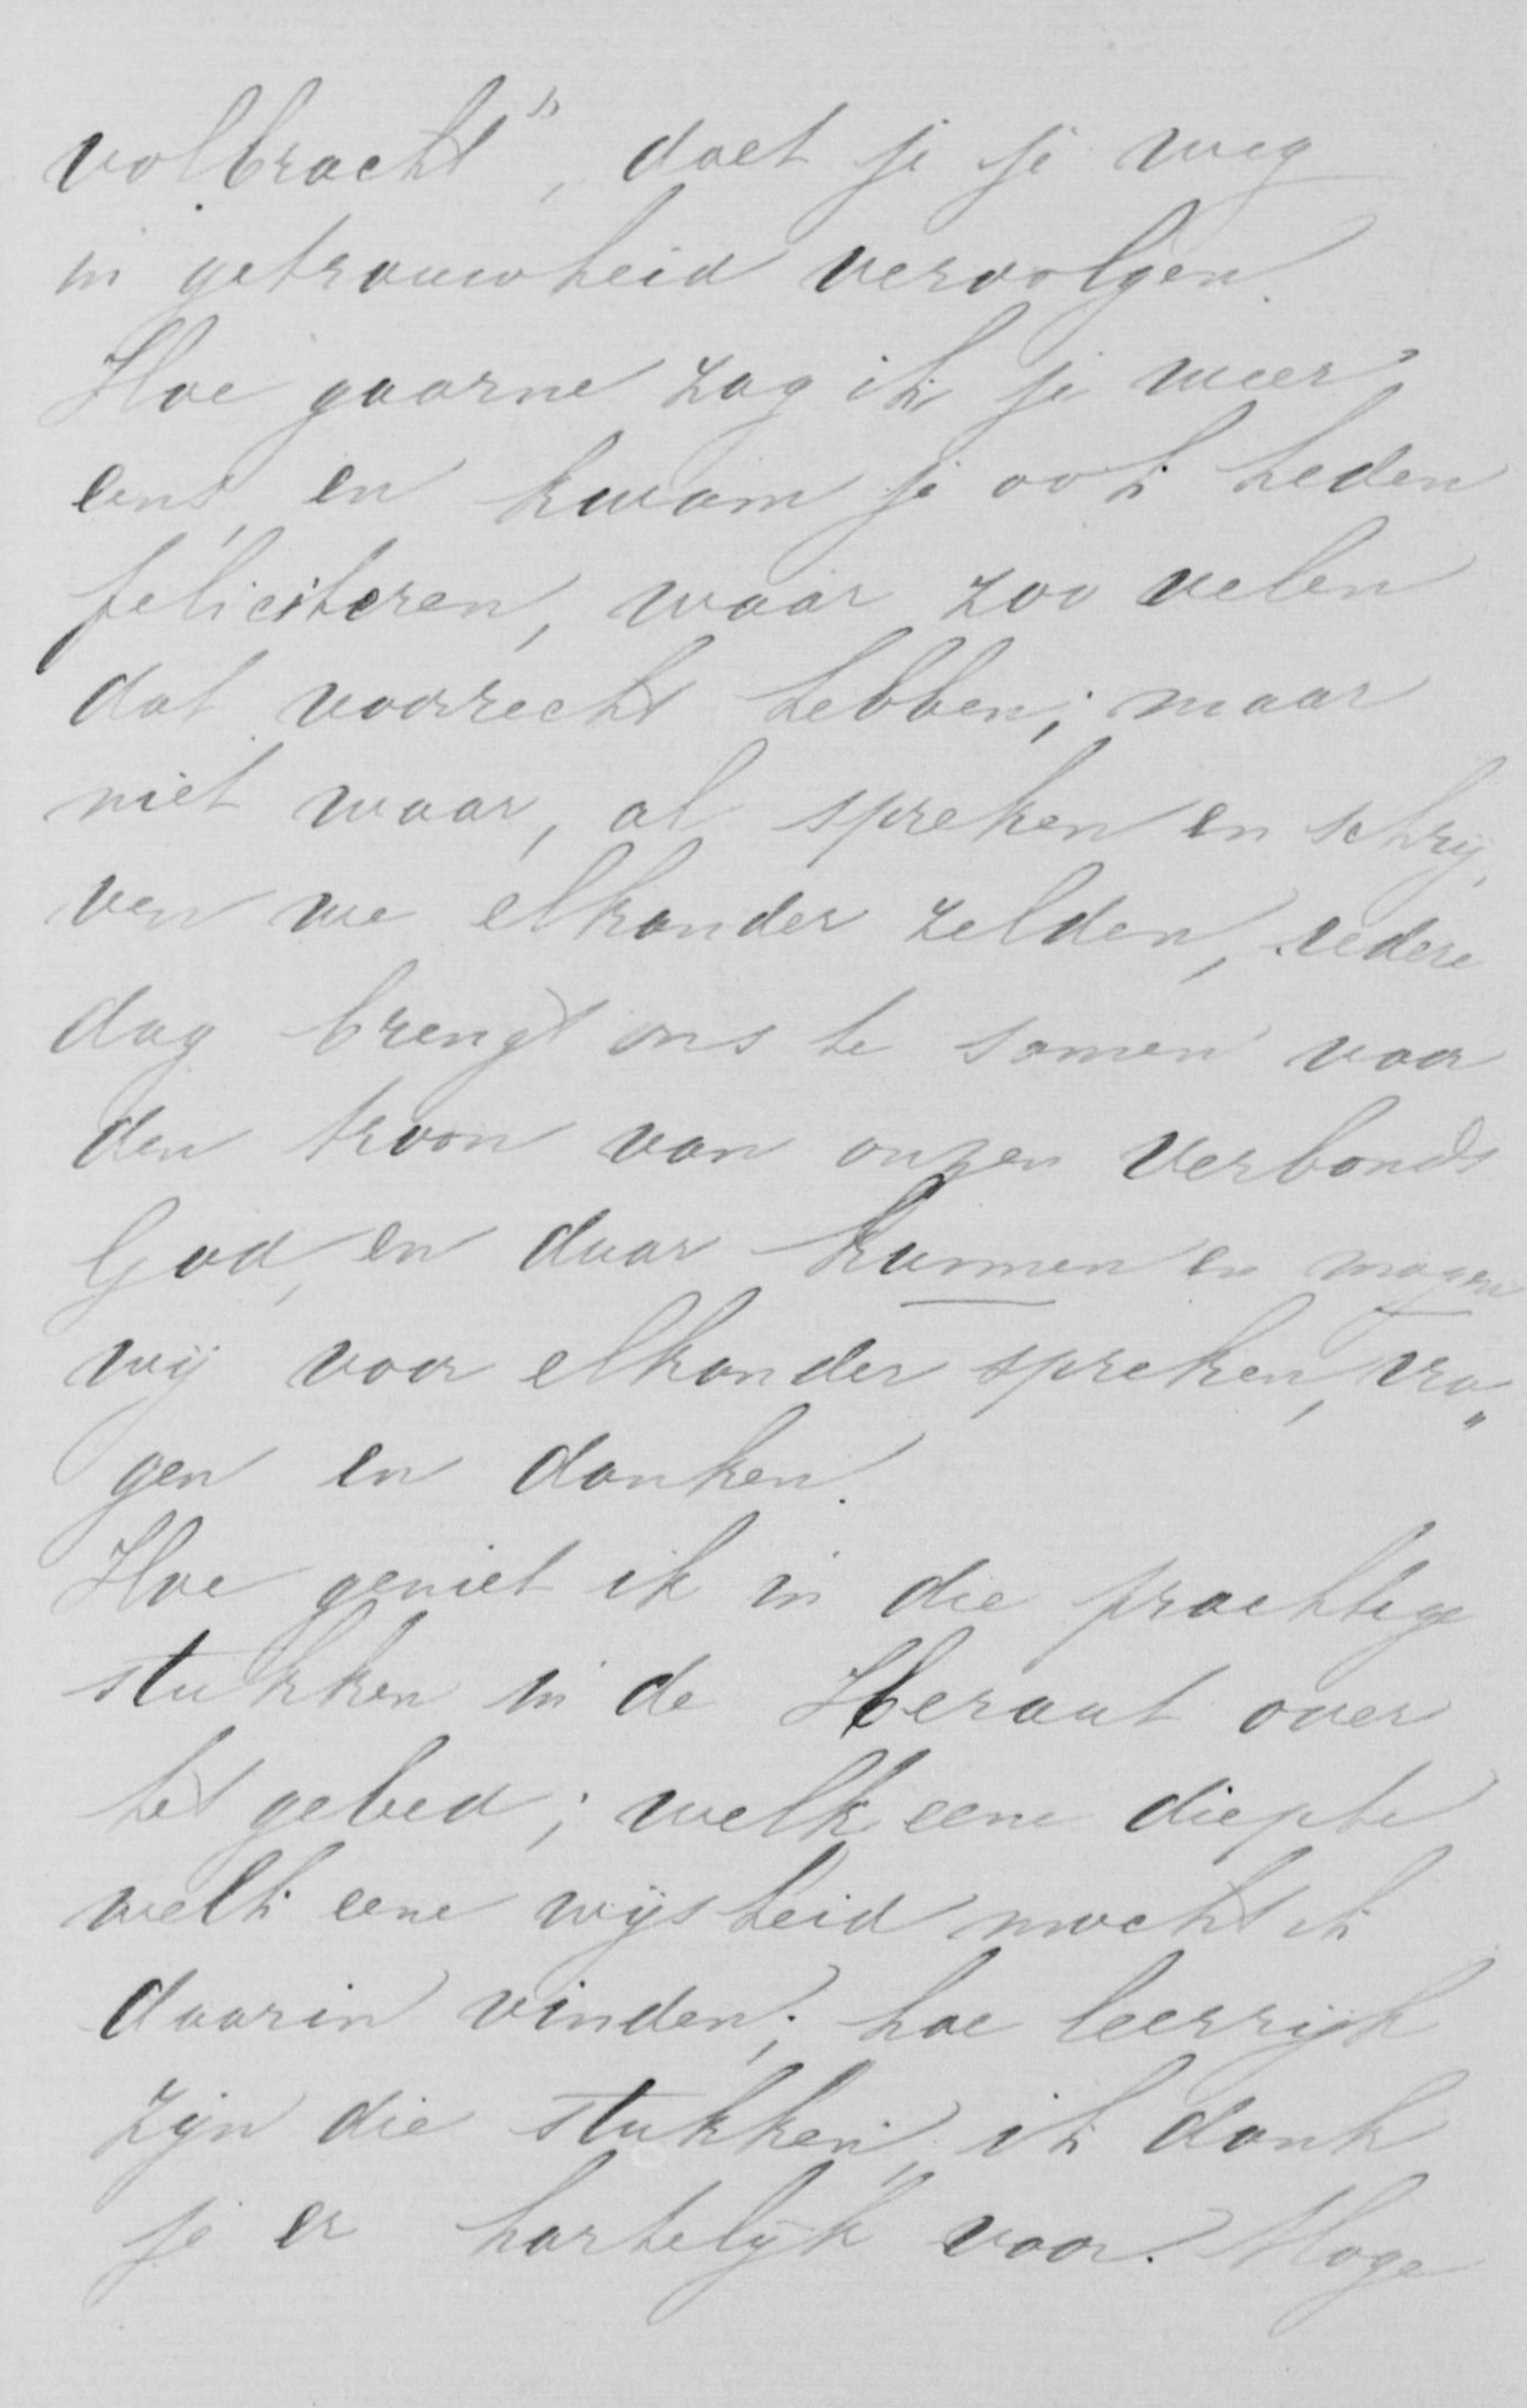 volbracht", doet je je weg
in getrouwheid vervolgen.
Hoe gaarne zag ik je weer
eens, en kwam je ook heden
feliciteren, waar zoo velen
dat voorrecht hebben; maar
niet waar, al spreken en schrij,
ven we elkander zelden, iedere
dag brengt ons te samen voor
den troon van onzen Verbonds
God, en daar kunnen en mogen
wij voor elkander spreken, vra„
gen en danken.
Hoe geniet ik in die prachtige
stukken in de Heraut over
het gebed; welk eene diepte
welk eene wijsheid mocht ik
daarin vinden; hoe leerrijk
zijn die stukken, ik dank
je er hartelijk voor. Moge